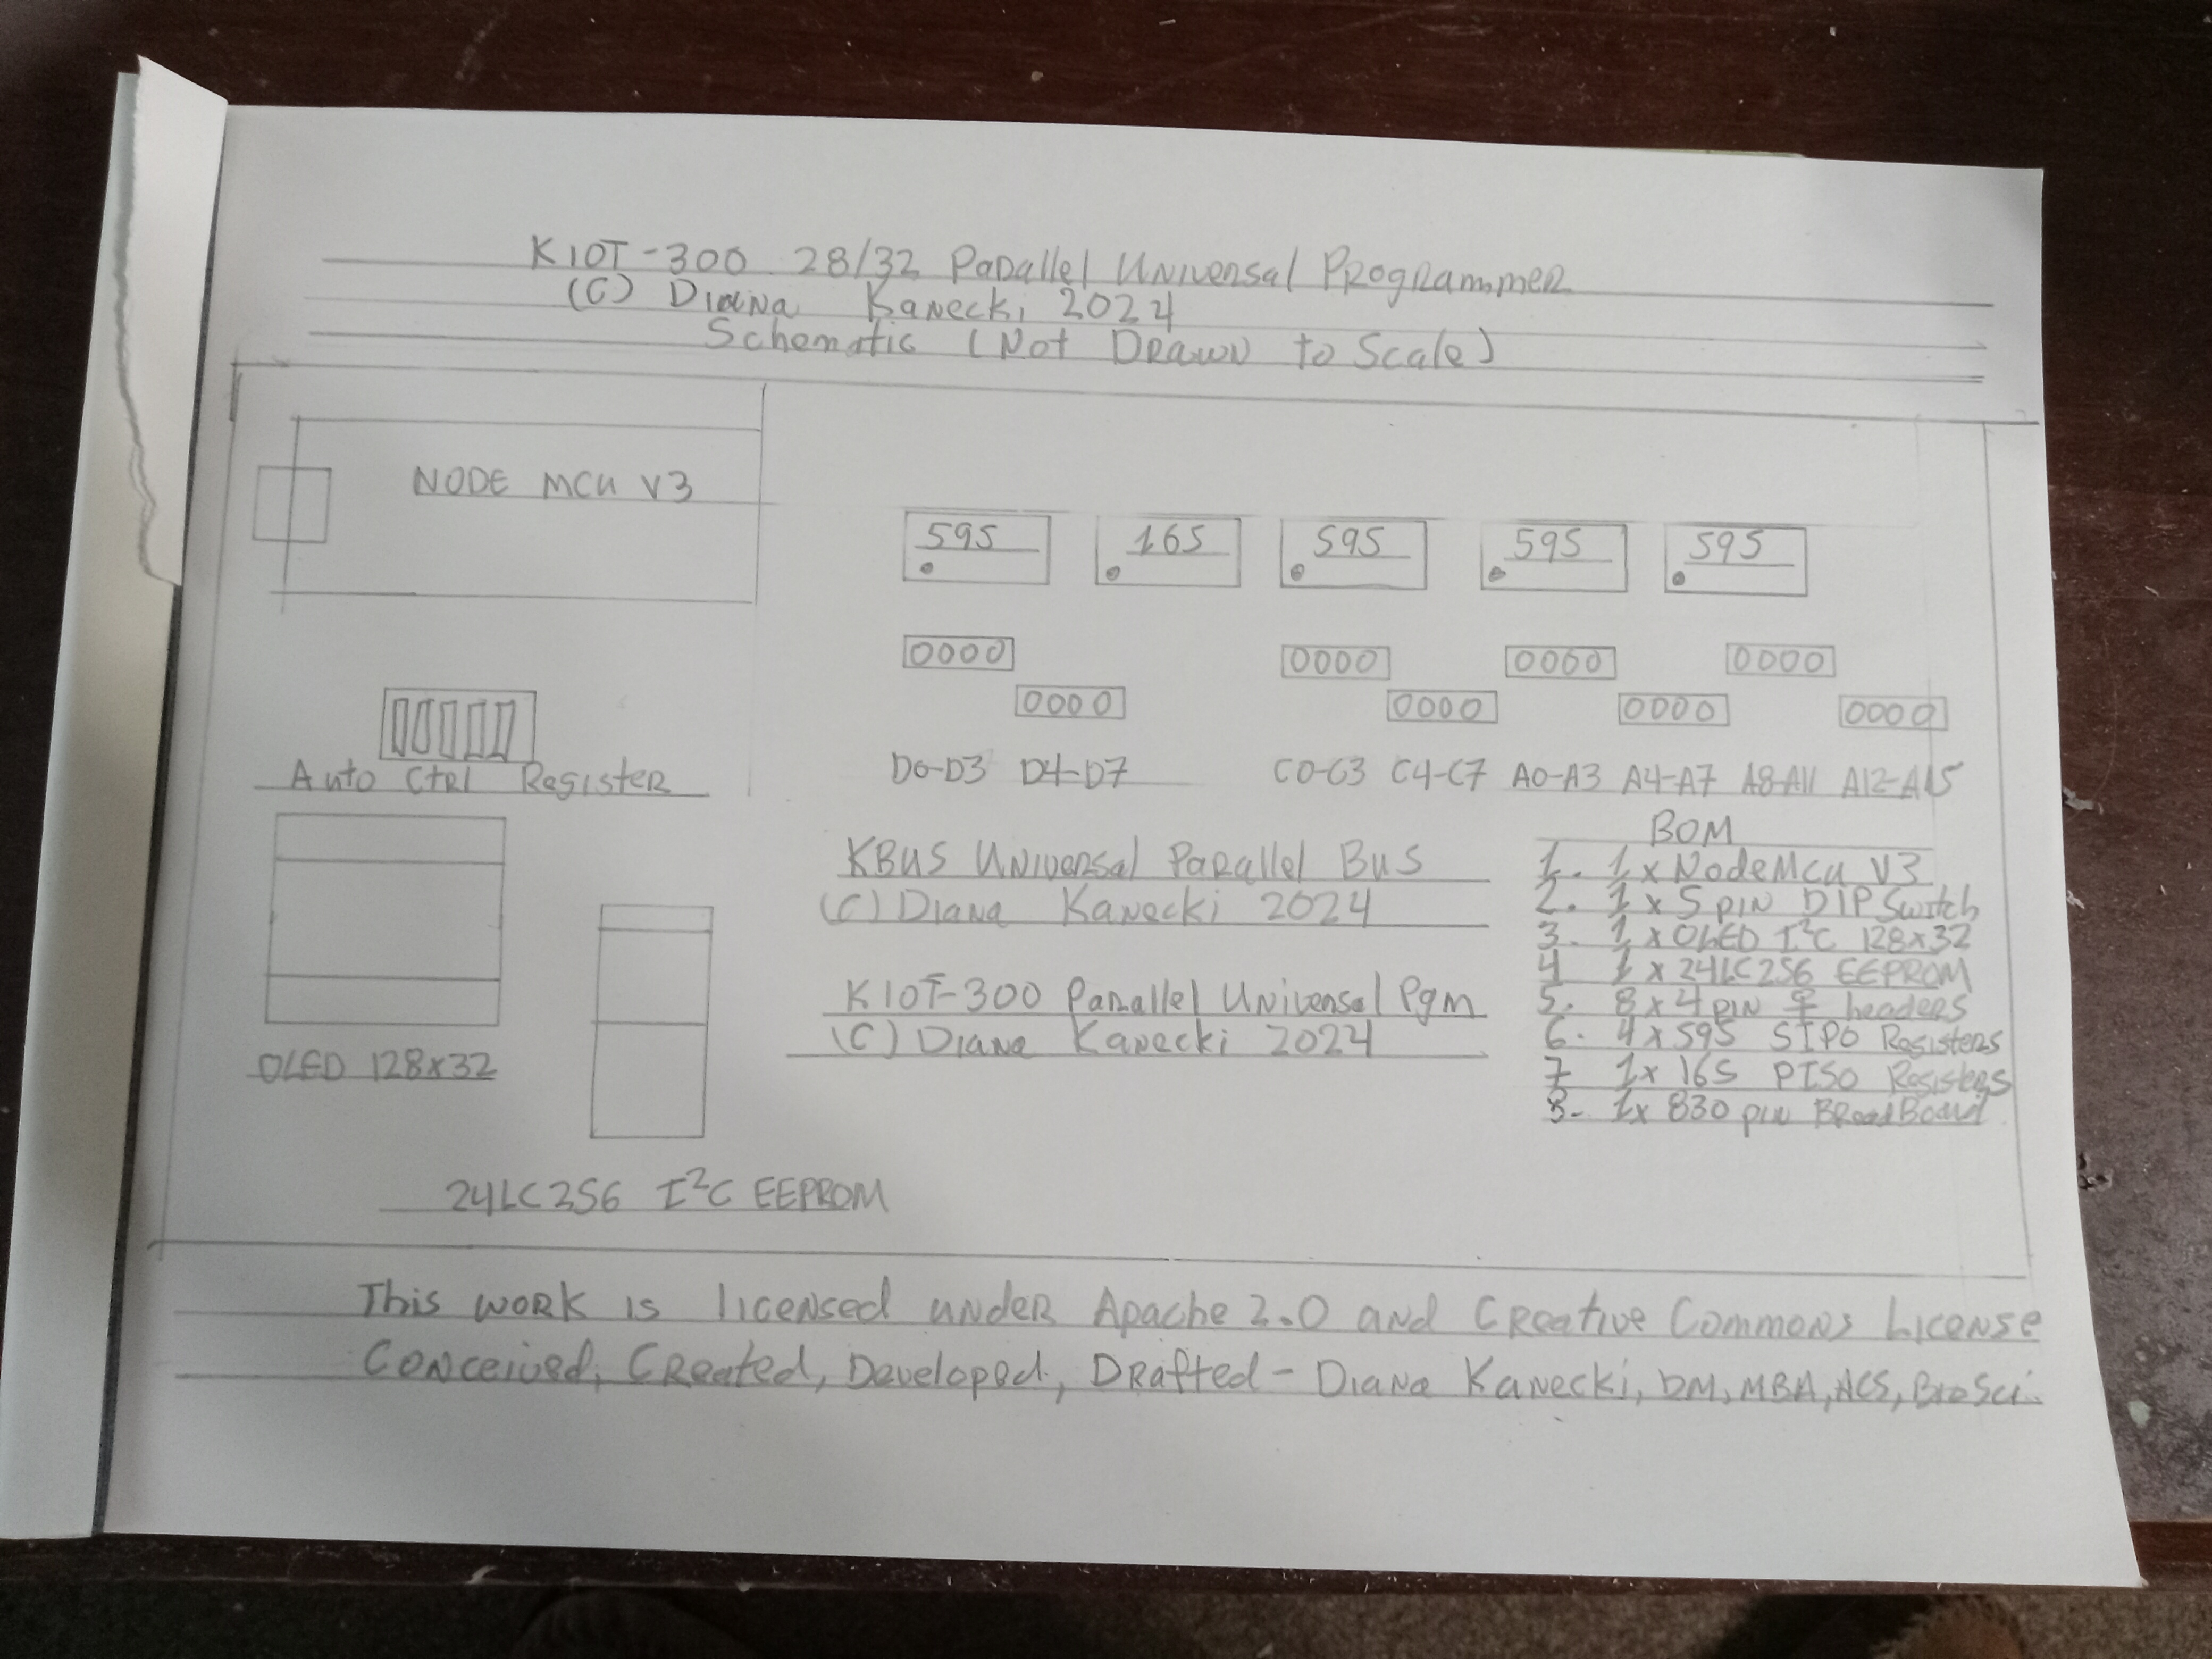 KIOT-300 28/32 Parallel Universal Programmer
(C) Diana Kanecki 2024
Schematic (Not Drawn to Scale)
NODE MCU V3
595 165 595 595 595
0000 0000 0000 0000
0000 0000 0000 0000
Auto Ctrl Register
D0-D3 D4-D7 C0-C3 C4-C7 A0-A3 A4-A7 A8-A11 A12-A15
KBUS Universal Parallel Bus
(C) Diana Kanecki 2024
KIOT-300 Parallel Universal Pgm
(C) Diana Kanecki 2024
BOM
1. 1 x NodeMcu V3
2. 1 x 5 pin DIP Switch
3. 1 x OLED I²C 128x32
4 1 x 24LC256 EEPROM
5. 8 x 4 pin ♀ headers
6. 4 x 595 SIPO Registers
7 1x 165 PISO Registers
8- 1x 830 pin BreadBoard
OLED 128x32
24LC256 I²C EEPROM
This work is licensed under Apache 2.0 and Creative Commons License
Conceived, Created, Developed, Drafted - Diana Kanecki, DM, MBA, ACS, BioSci.